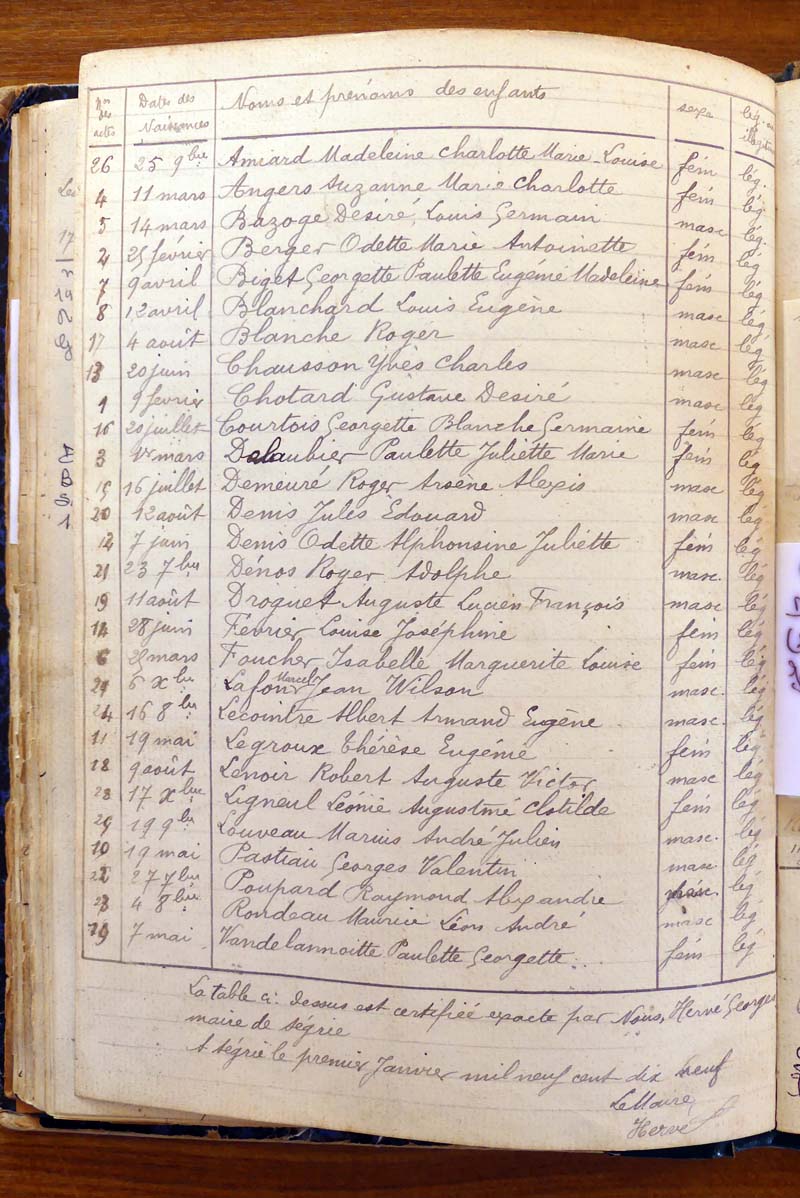 Nos des actes | Dates des Naissances | Noms et prénoms des enfants | sexe | lég. ou illégitime
26 | 25 9bre | Amiard Madeleine Charlotte Marie-Louise | fém | lég.
4 | 11 mars | Angers Suzanne Marie Charlotte | fém | lég
5 | 14 mars | Bazoge Desiré, Louis Germain | masc | lég.
2 | 25 février | Berger Odette Marie Antoinette | fém | lég
7 | 9 avril | Biget Georgette Paulette Eugénie Madeleine | fém | lég
8 | 12 avril | Blanchard Louis Eugène | masc | lég
17 | 4 août | Blanche Roger | masc | lég
13 | 20 juin | Chausson Yves Charles | masc | lég
1 | 9 fevrier | Chotard Gustave Desiré | masc | lég
16 | 20 juillet | Courtois Georgette Blanche Germaine | fém | lég
3 | mars | Delaubier Paulette Juliette Marie | fém | lég
15 | 16 juillet | Demeuré Roger Arsène Alexis | masc | lég
20 | 12 août | Denis Jules Edouard | masc | lég
12 | 7 juin | Denis Odette Alphonsine Juliette | fém | lég
21 | 23 7bre | Dénos Roger Adolphe | masc. | lég
19 | 11 août | Droguet Auguste Lucien François | masc | lég
14 | 28 juin | Fevrier Louise Joséphine | fém | lég
6 | mars | Foucher Isabelle Marguerite Louise | fém | lég
6 Xbre | Lafon Marcel Jean Wilson | masc. | lég
24 | 16 8bre | Lecointre Albert Armand Eugène | masc. | lég
11 | 19 mai | Legroux Thérèse Eugénie | fém | lég
18 | 9 août | Lenoir Robert Auguste Victor | masc | lég
28 | 17 Xbre | Ligneul Léonie Augustine Clotilde | fém | lég
19 9bre | Louveau Marius André Julien | masc. | lég
10 | 19 mai | Pastiau Georges Valentin | masc | lég
22 | 27 7bre | Poupard Raymond Alexandre | masc. | lég
4 8bre | Rondeau Maurice Léon André | masc | lég
7 mai | Vandelannoitte Paulette Georgette | fém | lég
La table ci-dessus est certifiée exacte par Nous, Hervé Georges
maire de ségrie
A ségrie le premier Janvier mil neuf cent dix neuf
Le Maire
Hervé